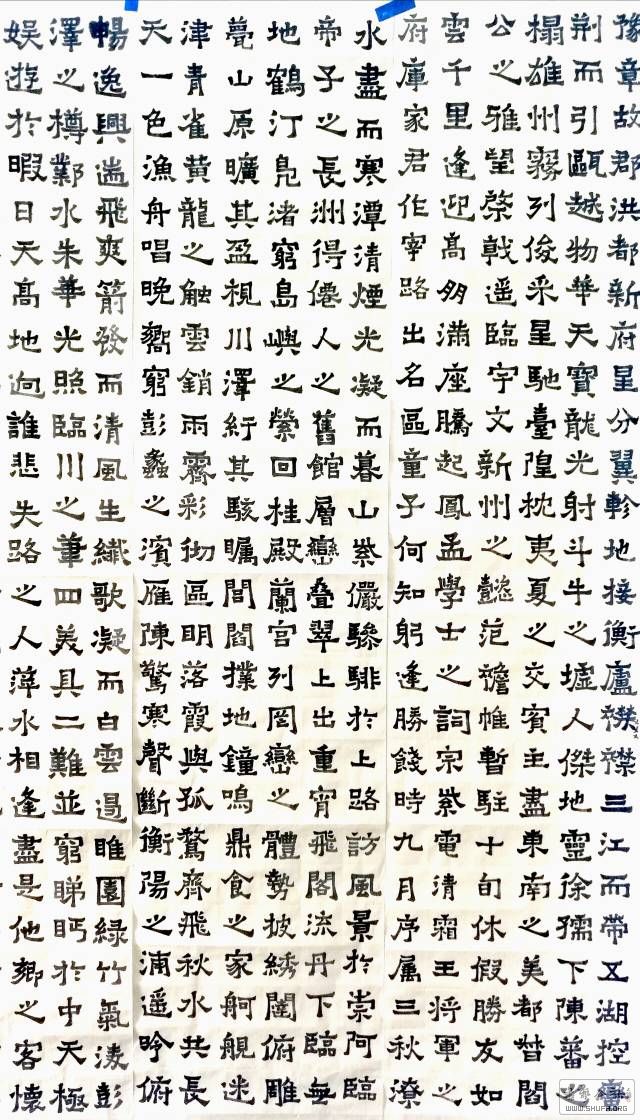 豫章故郡洪都新府星分翼軫地接衡廬襟襟三江而帶五湖控
荆而引甌越物華天寶龍光射斗牛之墟人傑地靈徐孺下陳蕃之
榻雄州霧列俊采星馳臺隍枕夷夏之交賓主盡東南之美都督閻
公之雅望棨戟遥臨宇文新州之懿范襜帷暫駐十旬休假勝友如
雲千里逢迎高朋滿座騰起鳳孟學士之詞宗紫電清霜王將軍之
府庫家君作宰路出名區童子何知躬逢勝餞時九月序属三秋潦
水盡而寒潭清煙光凝而暮山紫儼驂騑於上路訪風景於崇阿臨
帝子之長洲得僊人之舊館層巒叠翠上出重宵飛閣流丹下臨無
地鶴汀鳧渚窮島嶼之縈回桂殿蘭宫列罔巒之體勢披綉闥俯雕
甍山原曠其盈視川澤紆其駭矚閭閻撲地鐘鳴鼎食之家舸艦迷
津青雀黄龍之舳雲銷雨霽彩徹區明落霞與孤鶩齊飛秋水共長
天一色漁舟唱晚響窮彭蠡之濱雁陳驚寒聲斷衡陽之浦遥吟俯
暢逸興遄飛爽籟發而清風生纖歌凝而白雲遏睢園緑竹氣凌彭
澤之樽鄴水朱華光照臨川之筆四美具二難並窮睇眄於中天極
娱游於暇日天高地迥誰悲失路之人萍水相逢盡是他鄉之客懷
WWW.SHUFA.ORG